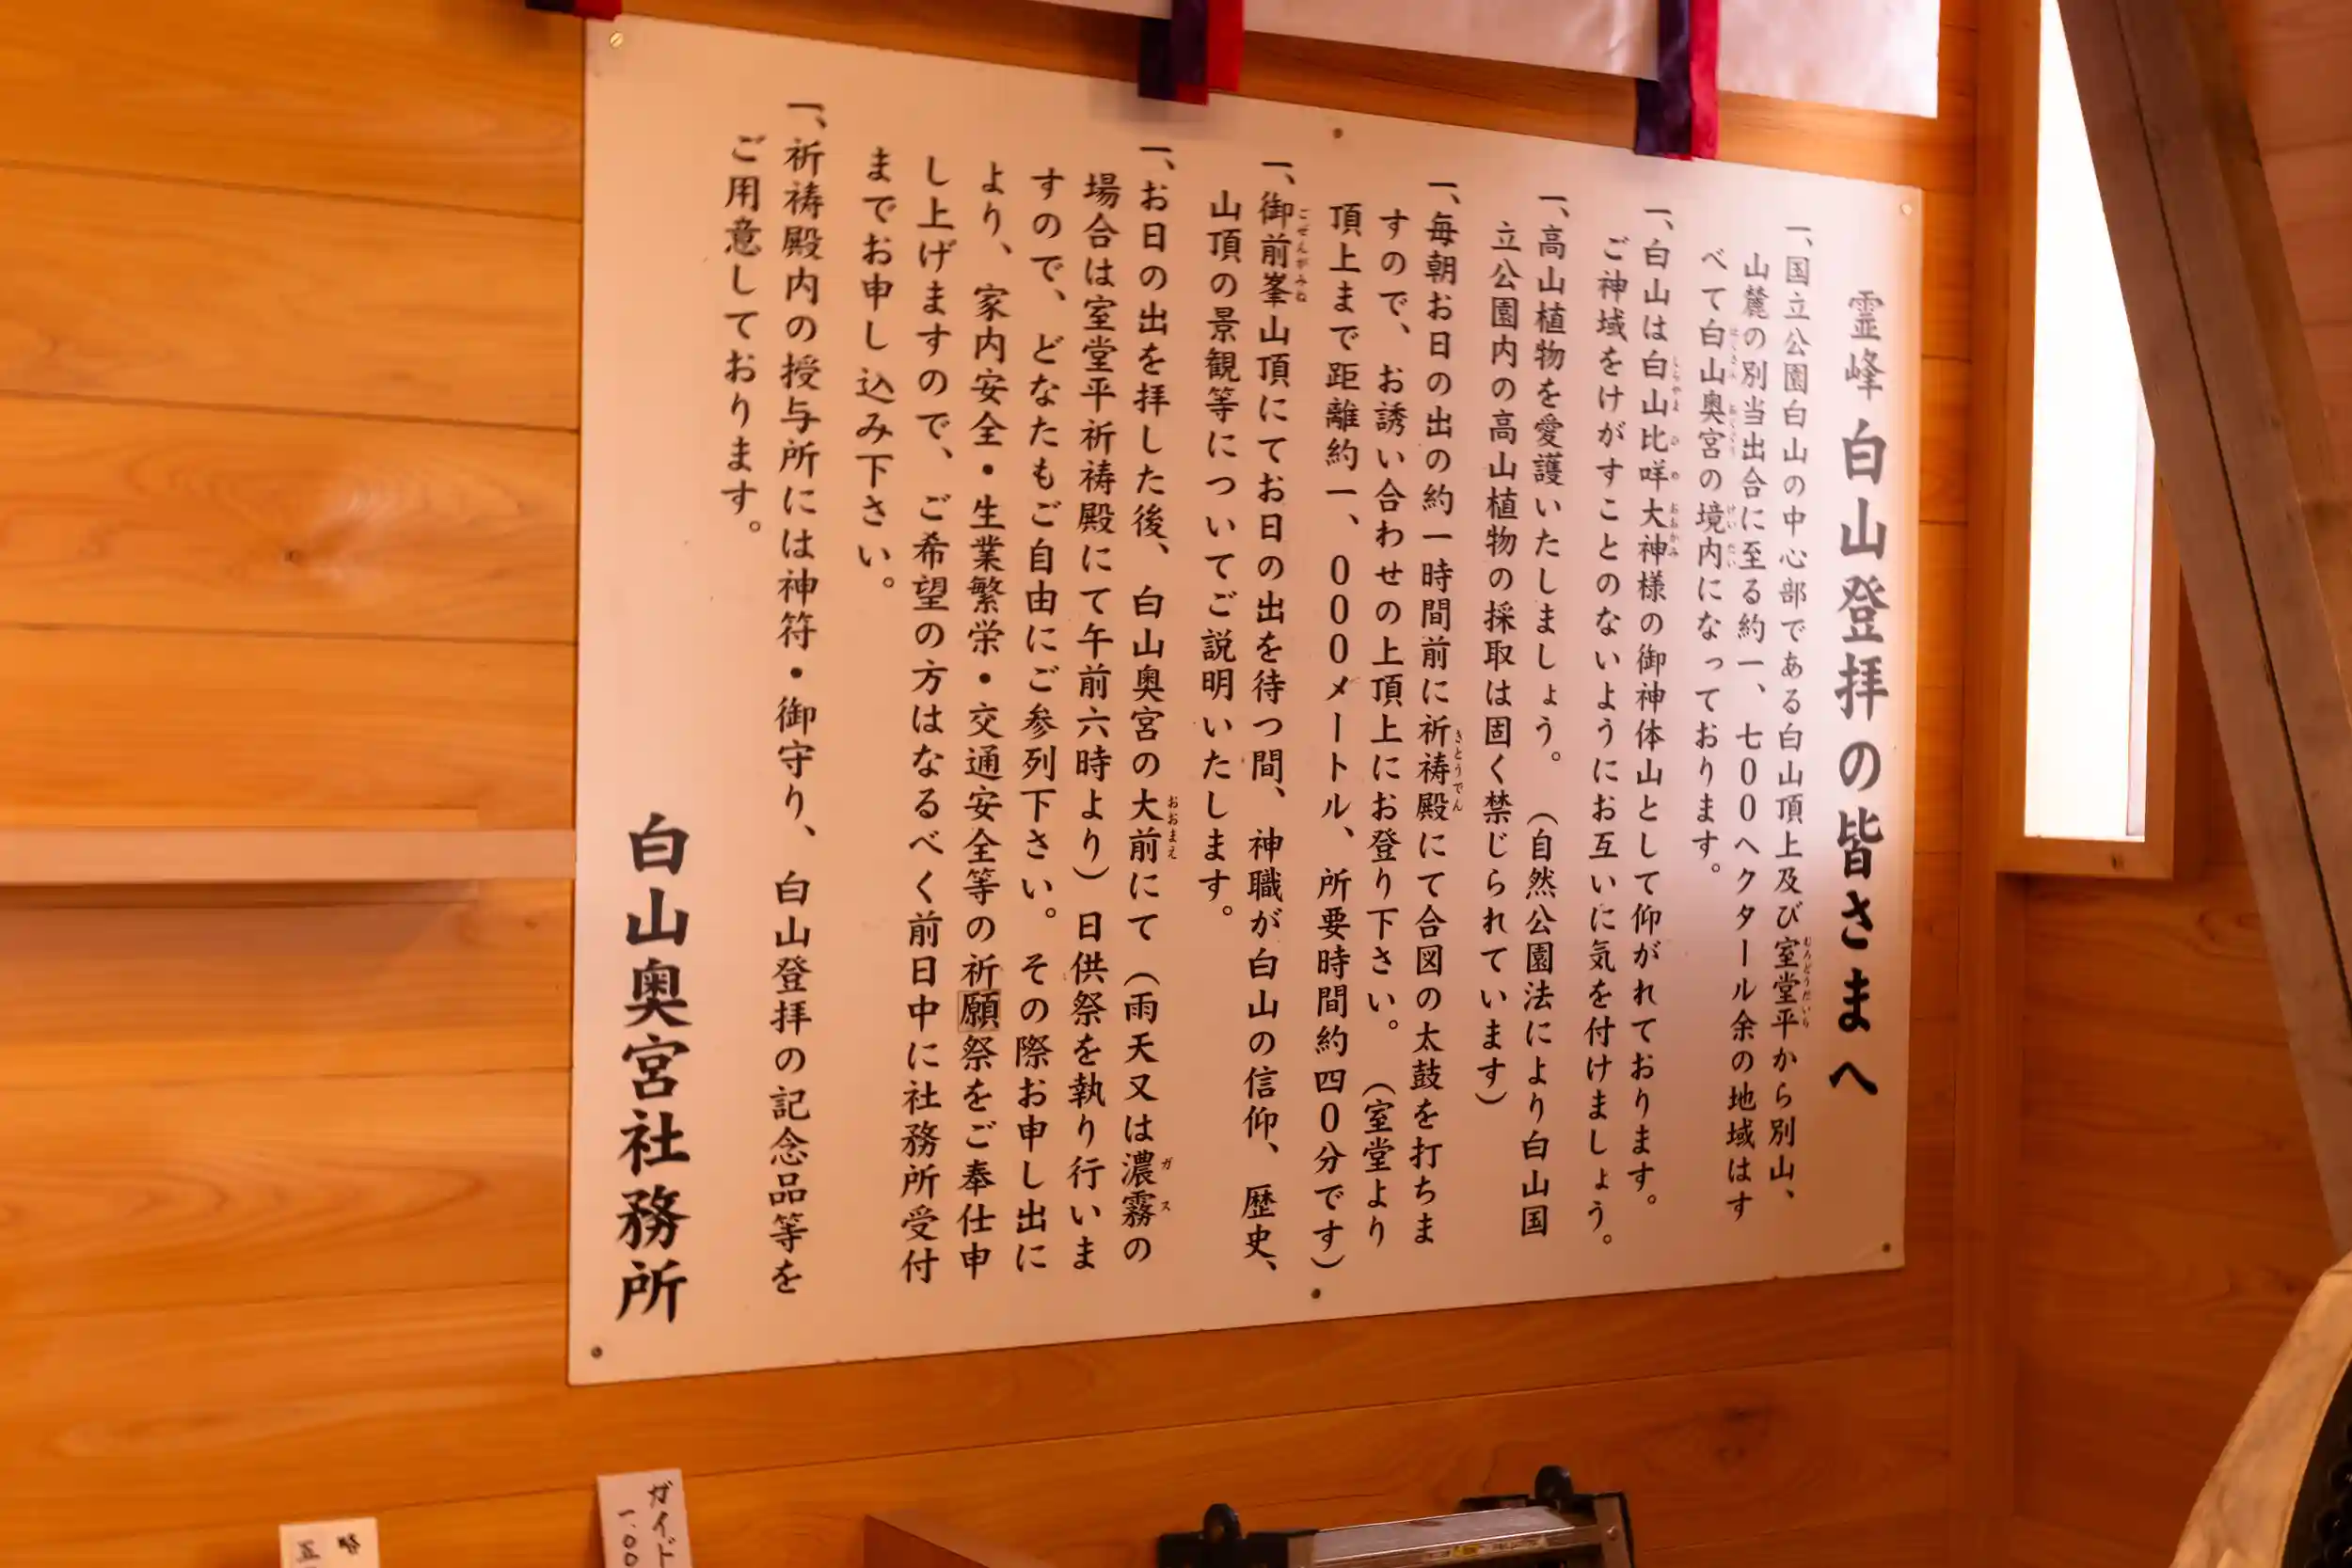 霊峰 白山登拝の皆さまへ
一、国立公園白山の中心部である白山頂上及び室堂平から別山、
山麓の別当出合に至る約一、七00ヘクタール余の地域はす
べて白山奥宮の境内になっております。
一、白山は白山比咩大神様の御神体山として仰がれております。
ご神域をけがすことのないようにお互いに気を付けましょう。
一、高山植物を愛護いたしましょう。（自然公園法により白山国
立公園内の高山植物の採取は固く禁じられています）
一、毎朝お日の出の約一時間前に祈祷殿にて合図の太鼓を打ちま
すので、お誘い合わせの上頂上にお登り下さい。（室堂より
頂上まで距離約一、000メートル、所要時間約四0分です）
一、御前峯山頂にてお日の出を待つ間、神職が白山の信仰、歴史、
山頂の景観等についてご説明いたします。
一、お日の出を拝した後、白山奥宮の大前にて（雨天又は濃霧の
場合は室堂平祈祷殿にて午前六時より）日供祭を執り行いま
すので、どなたもご自由にご参列下さい。その際お申し出に
より、家内安全・生業繁栄・交通安全等の祈願祭をご奉仕申
し上げますので、ご希望の方はなるべく前日中に社務所受付
までお申し込み下さい。
一、祈祷殿内の授与所には神符・御守り、白山登拝の記念品等を
ご用意しております。
白山奥宮社務所
ガイド